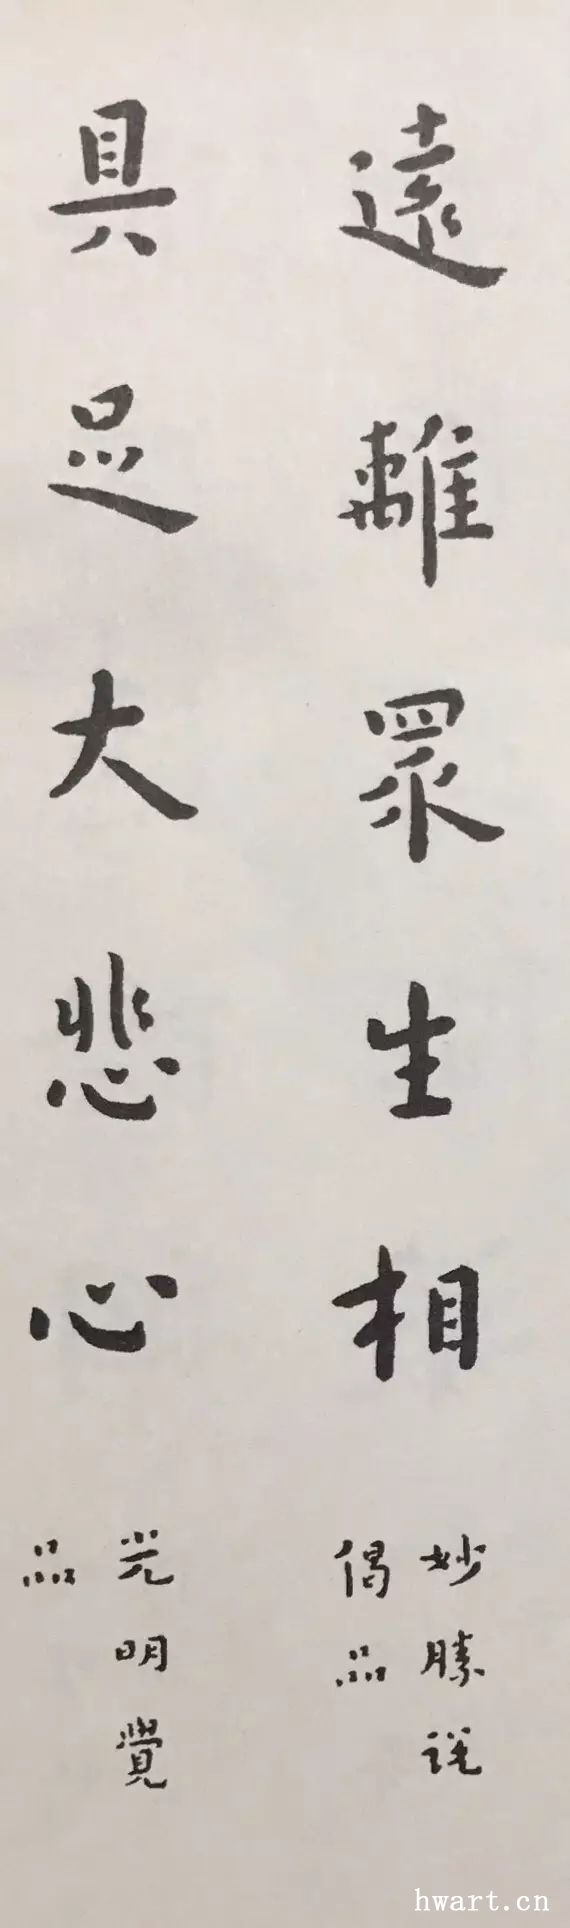 遠離眾生相
妙勝説
偈品
具足大悲心
光明覺
品
hwart.cn